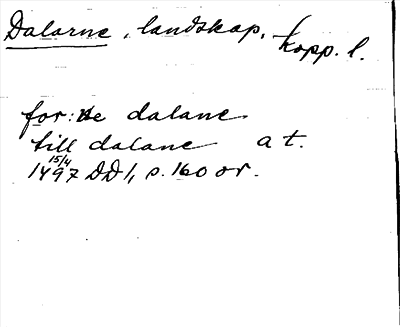 Dalarne, landskap, Kopp. l.
for: de dalane
till dalane at.
15/4
1497 DD 1, s. 160 or.